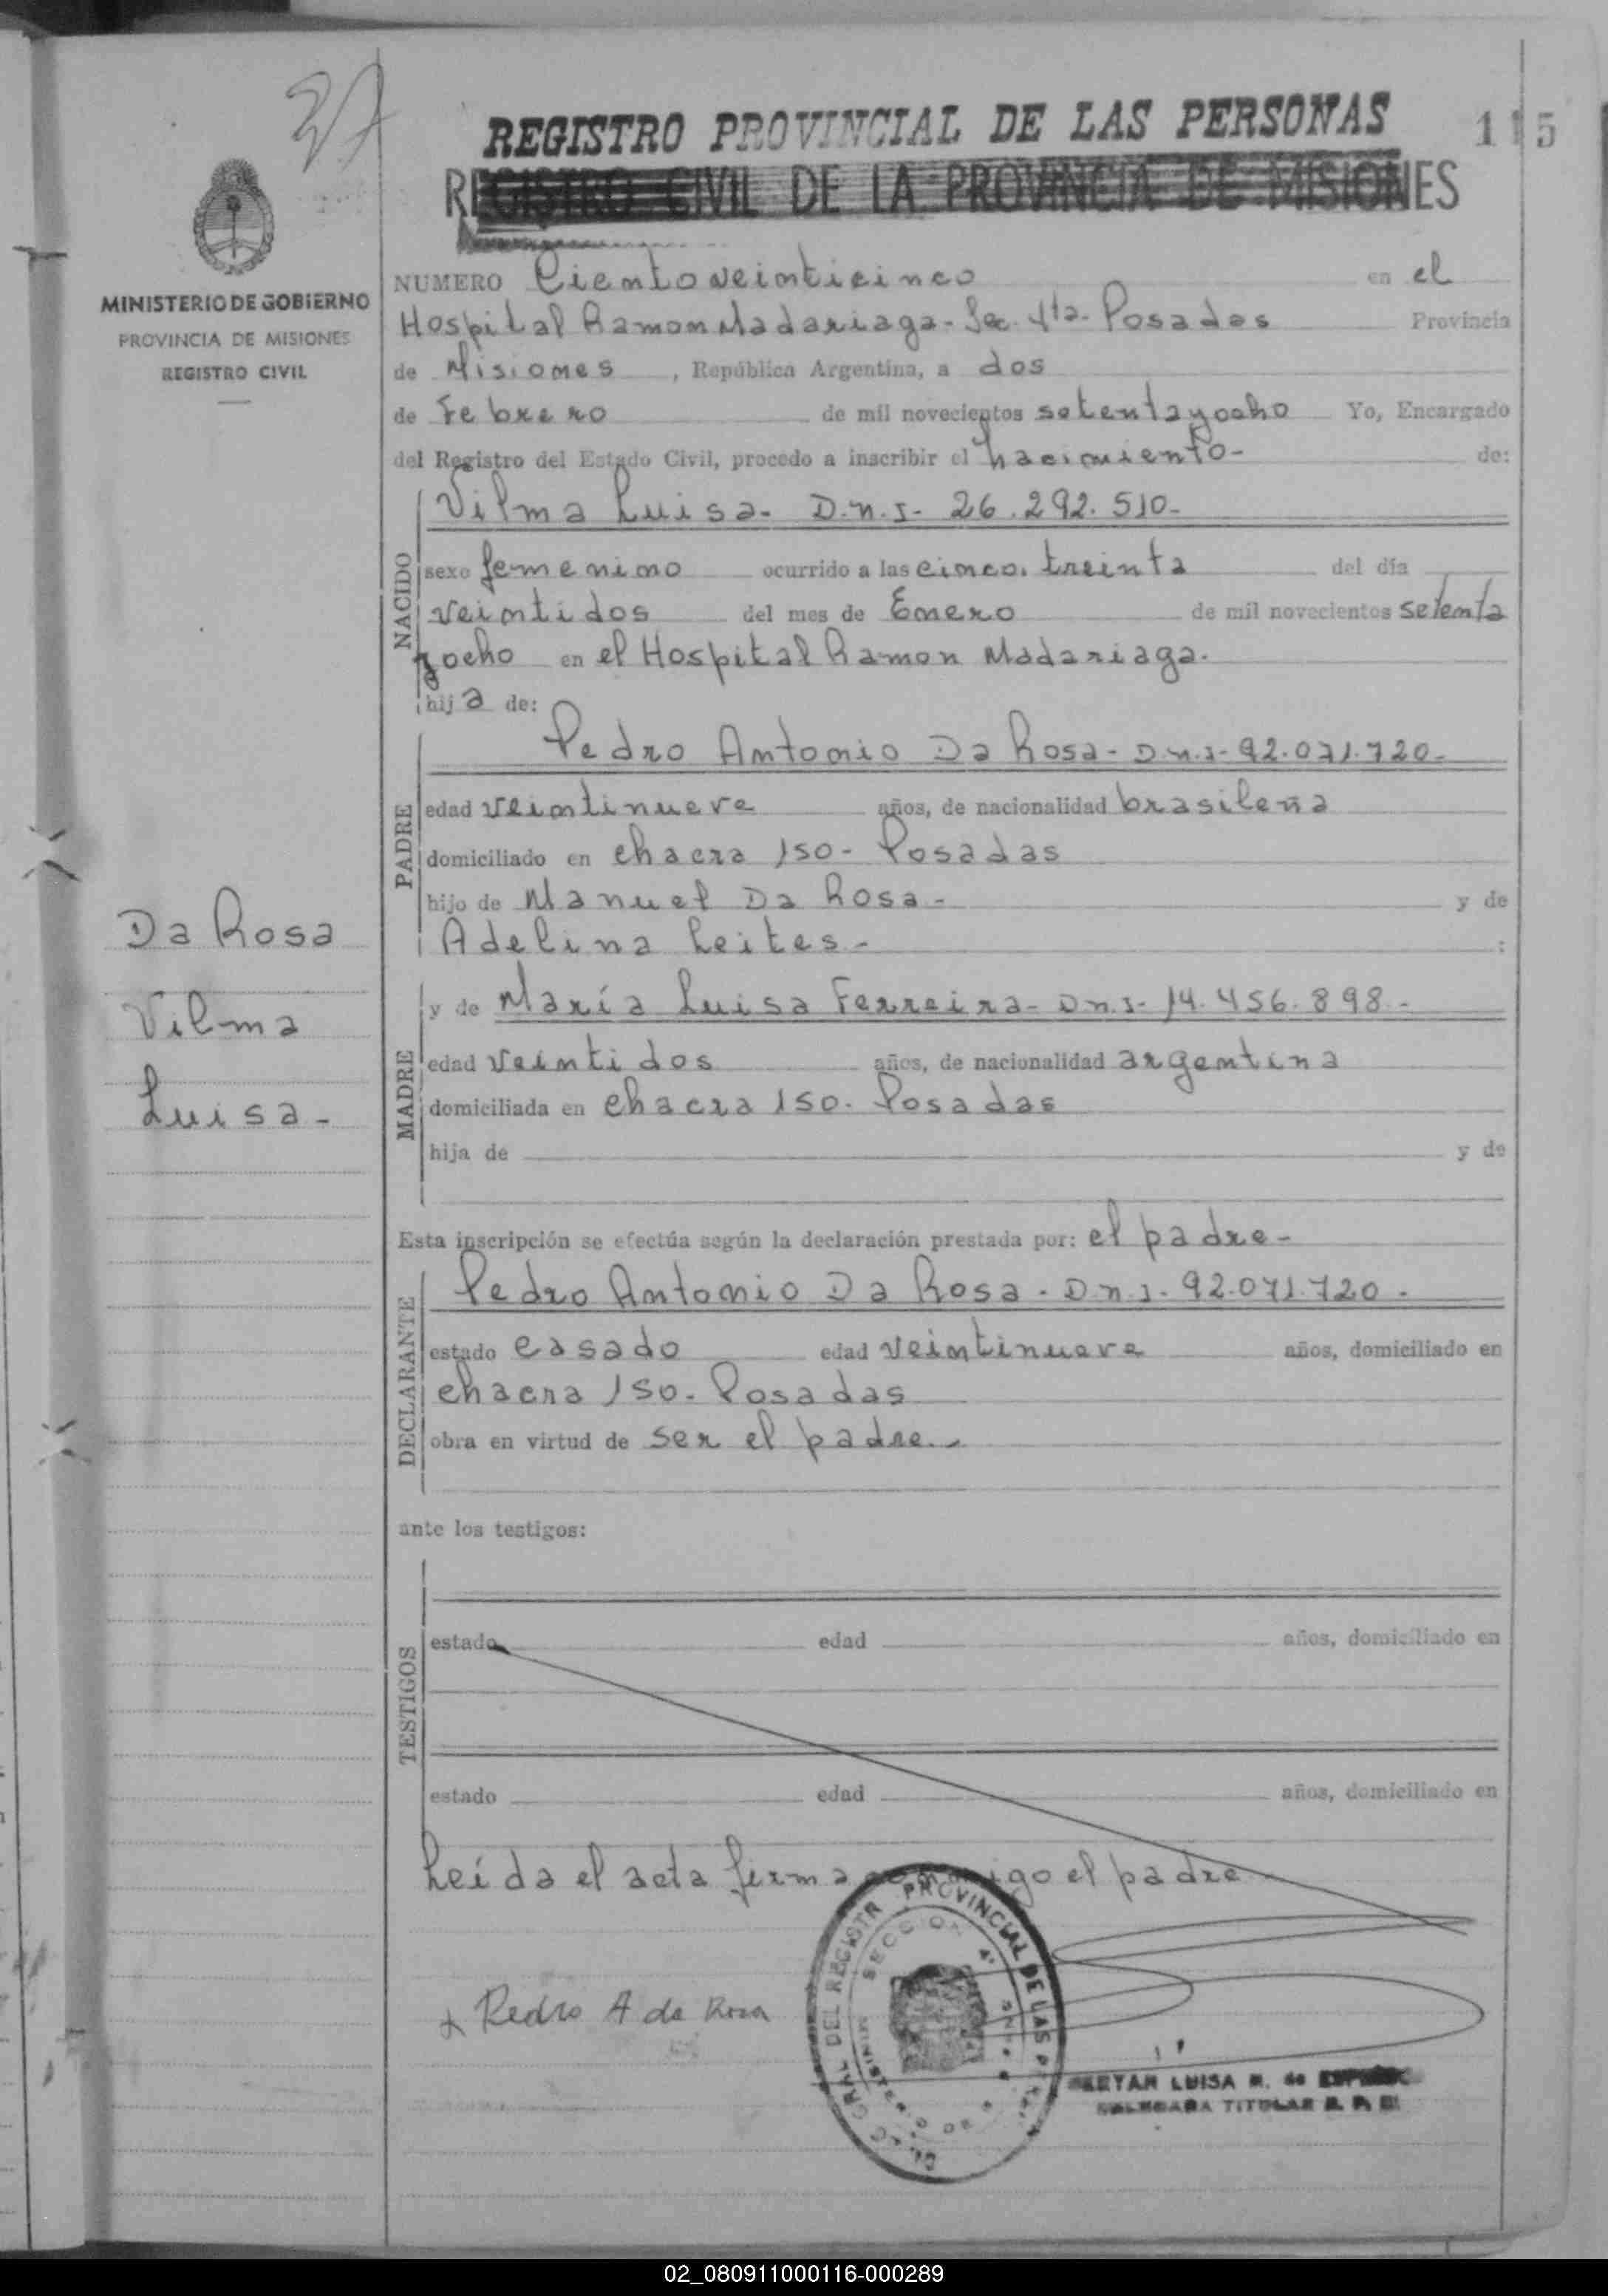 37
REGISTRO PROVINCIAL DE LAS PERSONAS
115
REGISTRO CIVIL DE LA PROVINCIA DE MISIONES
MINISTERIO DE GOBIERNO
PROVINCIA DE MISIONES
REGISTRO CIVIL
NUMERO Ciento veinticinco en el
Hospital Ramon Madariaga - Sec. 4ta - Posadas Provincia
de Misiones, República Argentina, a dos
de Febrero de mil novecientos setenta y ocho Yo, Encargado
del Registro del Estado Civil, procedo a inscribir el nacimiento - de:
NACIDO
Vilma Luisa - D.n.I - 26.292.510 -
sexo femenino ocurrido a las cinco. treinta del día
veintidos del mes de Enero de mil novecientos setenta
y ocho en el Hospital Ramon Madariaga.
hija de:
PADRE
Pedro Antonio Da Rosa - D.n.I - 92.071.720 -
edad veintinueve años, de nacionalidad brasileña
domiciliado en chacra 150 - Posadas
hijo de Manuel Da Rosa - y de
Adelina Leites - :
Da Rosa
Vilma
Luisa -
MADRE
y de María Luisa Ferreira - D.n.I - 14.456.898 -
edad veintidos años, de nacionalidad argentina
domiciliada en chacra 150 - Posadas
hija de y de
Esta inscripción se efectúa según la declaración prestada por: el padre -
DECLARANTE
Pedro Antonio Da Rosa - D.n.I - 92.071.720 -
estado casado edad veintinueve años, domiciliado en
chacra 150 - Posadas
obra en virtud de ser el padre -
ante los testigos:
TESTIGOS
estado edad años, domiciliado en
estado edad años, domiciliado en
Leída el acta firma conmigo el padre
+ Pedro A da Rosa
GRAL DEL REGISTR PROVINCIAL DE LAS
SECCION 4ª
LUISA M. de
TITULAR
02_080911000116-000289